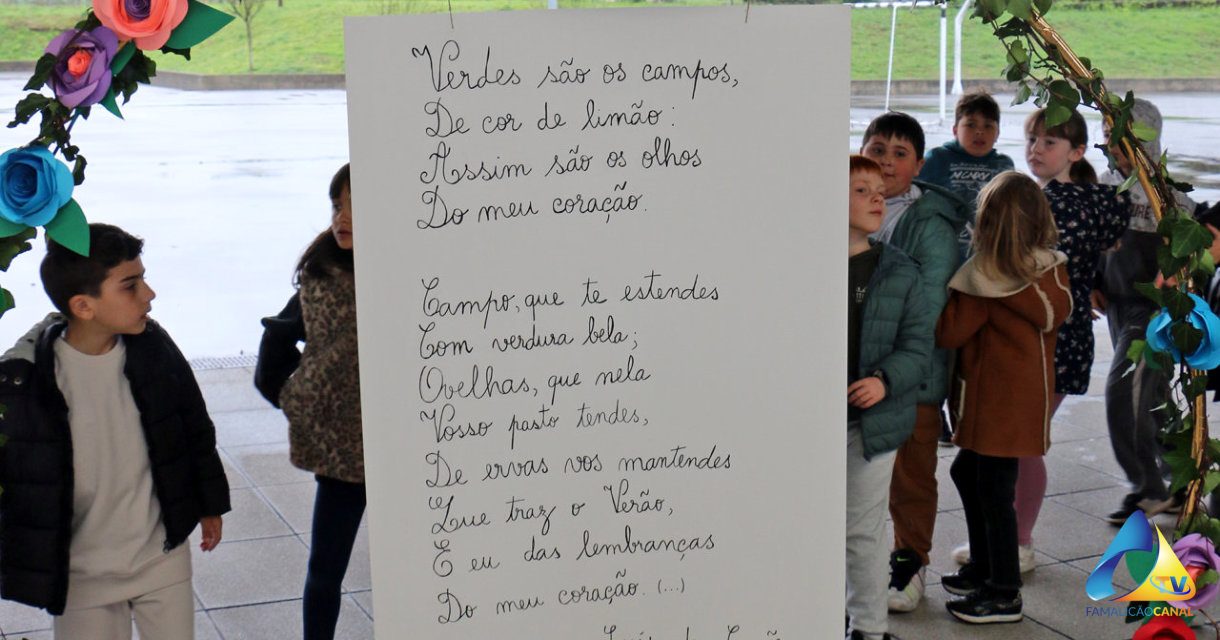 Verdes são os campos,
De cor de limão:
Assim são os olhos
Do meu coração.
Campo, que te estendes
Com verdura bela;
Ovelhas, que nela
Vosso pasto tendes,
De ervas vos mantendes
Que traz o Verão,
E eu das lembranças
Do meu coração. (...)
TV
FAMALICÃOCANAL